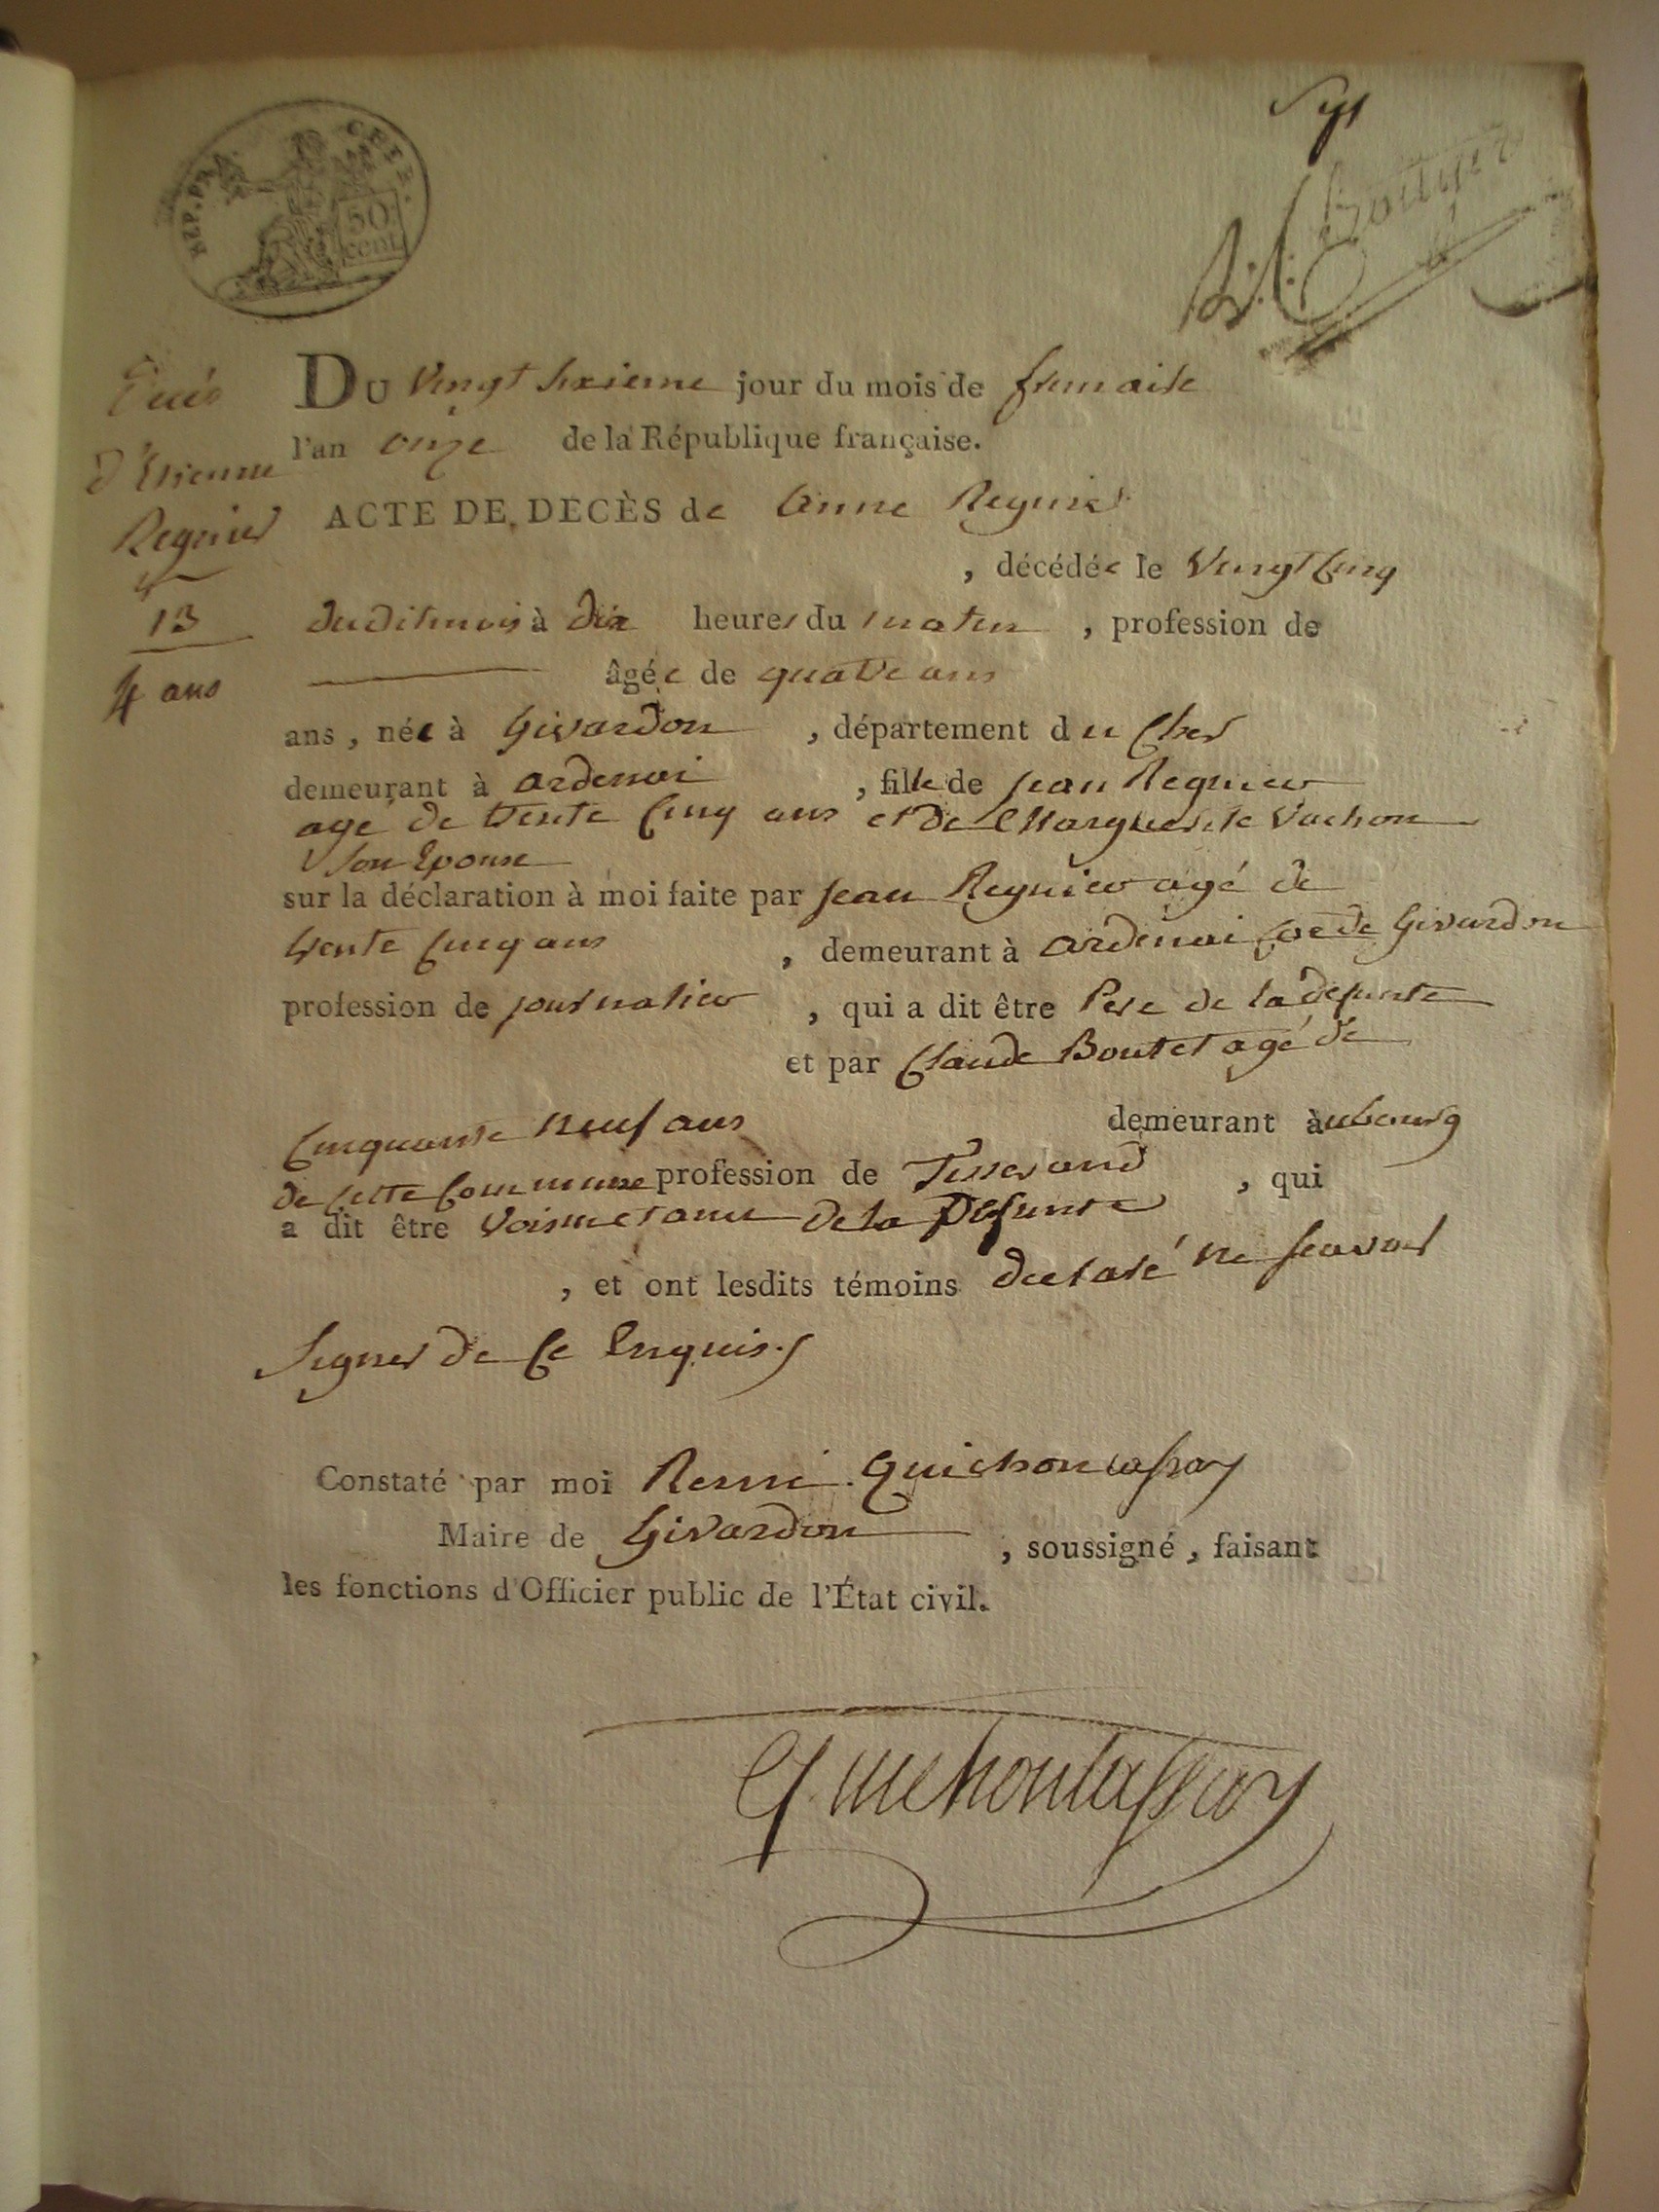 REP. FRA.
50
cent.
Du vingt sixieme jour du mois de frimaire
l'an onze de la République française.
ACTE DE DECÈS de Anne Regnier
, décédée le vingt cinq
dudit mois à dix heures du matin , profession de
âgée de quatre ans
ans , née à Givardon , département du Cher
demeurant à ardenai , fille de jean Regnier
agé de trente cinq ans et de Marguerite Vachon
son Epouse
sur la déclaration à moi faite par jean Regnier agé de
trente cinq ans , demeurant à ardenai coe de Givardon
profession de journalier , qui a dit être Pere de la defunte
et par Claude Boutet agé de
cinquante neuf ans demeurant à ubourg
de cette commune profession de Tisserand , qui
a dit être voisin et ami de la Defunte
, et ont lesdits témoins declaré ne scavoir
signer de ce Enquis.
Constaté par moi Remi Guichon
Maire de Givardon , soussigné , faisant
les fonctions d'Officier public de l'État civil.
d'Etienne
Regnier
13
4 ans